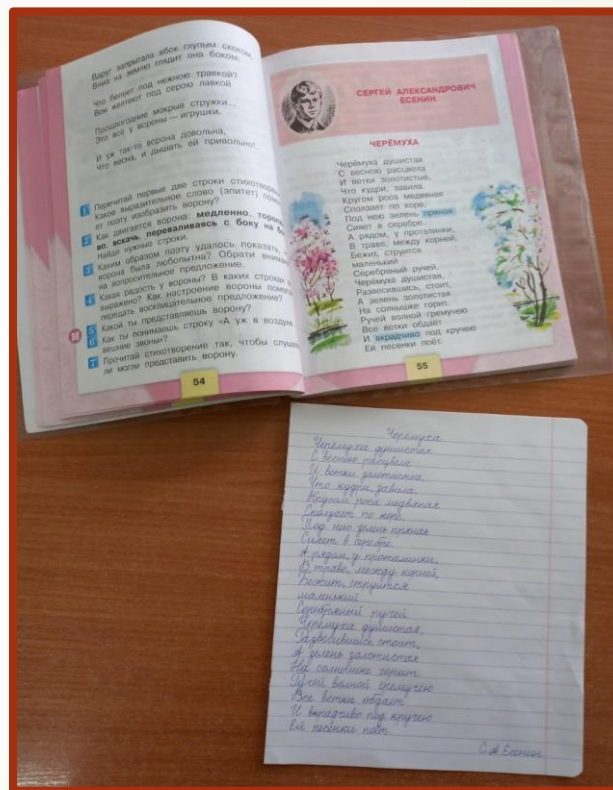 Вдруг запрыгала вбок глупым скоком,
Вниз на землю глядит она боком:
Что белеет под нежною травкой?
Вон желтеют под серою лавкой
Прошлогодние мокрые стружки...
Это всё у вороны — игрушки,
И уж так-то ворона довольна,
Что весна, и дышать ей привольно!..
1 Перечитай первые две строки
Какое выразительное слово (эпитет)
ет поэту изобразить ворону?
2 Как двигается ворона: медленно,
во, вскачь, переваливаясь с боку на
Найди нужные строки.
3 Каким образом поэту удалось показать,
ворона была любопытна? Обрати
на вопросительное предложение.
4 Какая радость у вороны? В каких строках
выражено? Как настроение вороны
передать восклицательное предложение?
5 Какой ты представляешь ворону?
6 Как ты понимаешь строку «А уж в воздухе
вешние звоны»?
7 Прочитай стихотворение так, чтобы
ли могли представить ворону.
54
СЕРГЕЙ АЛЕКСАНДРОВИЧ
ЕСЕНИН
ЧЕРЁМУХА
Черёмуха душистая
С весною расцвела
И ветки золотистые,
Что кудри, завила.
Кругом роса медвяная
Сползает по коре,
Под нею зелень пряная
Сияет в серебре.
А рядом, у проталинки,
В траве, между корней,
Бежит, струится
маленький
Серебряный ручей.
Черёмуха душистая,
Развесившись, стоит,
А зелень золотистая
На солнышке горит.
Ручей волной гремучею
Все ветки обдаёт
И вкрадчиво под кручею
Ей песенки поёт.
55
Черемуха
Черемуха душистая
С весною расцвела
И ветки золотистые
Что кудри, завила.
Кругом роса медвяная
Сползает по коре,
Под нею зелень пряная
Сияет в серебре.
А рядом, у проталинки,
В траве, между корней,
Бежит, струится
маленький
Серебряный ручей
Черемуха душистая,
Развесившись, стоит,
А зелень золотистая
На солнышке горит.
Ручей волной гремучею
Все ветки обдает
И вкрадчиво под кручею
Ей песенки поёт.
С. А Есенин